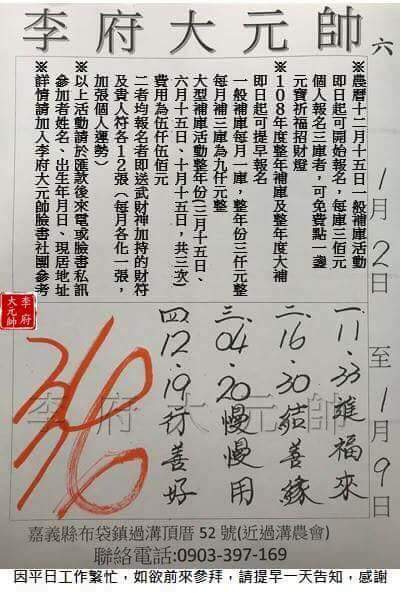 李府大元帥
六
1月2日 至 1月9日
※農曆十二月十五日一般補庫活動
即日起可開始報名，每庫三佰元
個人報名三庫者，可免費點一盞
元寶祈福招財燈
※108年度整年補庫及整年度大補
即日起可提早報名
一般補庫每月一庫，整年份三仟元整
每月補三庫為九仟元整
大型補庫活動整年份(三月十五日、
六月十五日、十月十五日，共三次)
費用為伍仟伍佰元
二者均報名者即送武財神加持的財符
及貴人符各12張(每月各化一張，
加張個人運勢)
※以上活動請於匯款後來電或臉書私訊
參加者姓名、出生年月日、現居地址
※詳情請加入李府大元帥臉書社團參考
李府
大元帥
一.11.33進福來
二.16.30結善緣
三.04.20慢慢用
四.12.19行善好
李府大元帥
嘉義縣布袋鎮過溝頂厝 52 號(近過溝農會)
聯絡電話:0903-397-169
因平日工作繁忙，如欲前來參拜，請提早一天告知，感謝